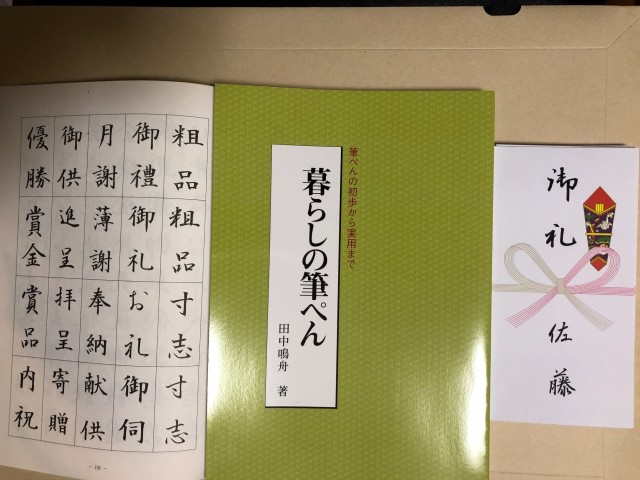 粗品 粗品 寸志 寸志
御禮 御礼 お礼 御伺
月謝 薄謝 奉納 献供
御供 進呈 拝呈 寄贈
優勝 賞金 賞品 内祝
筆ぺんの初歩から実用まで
暮らしの筆ぺん
田中鳴舟 著
御礼
佐藤